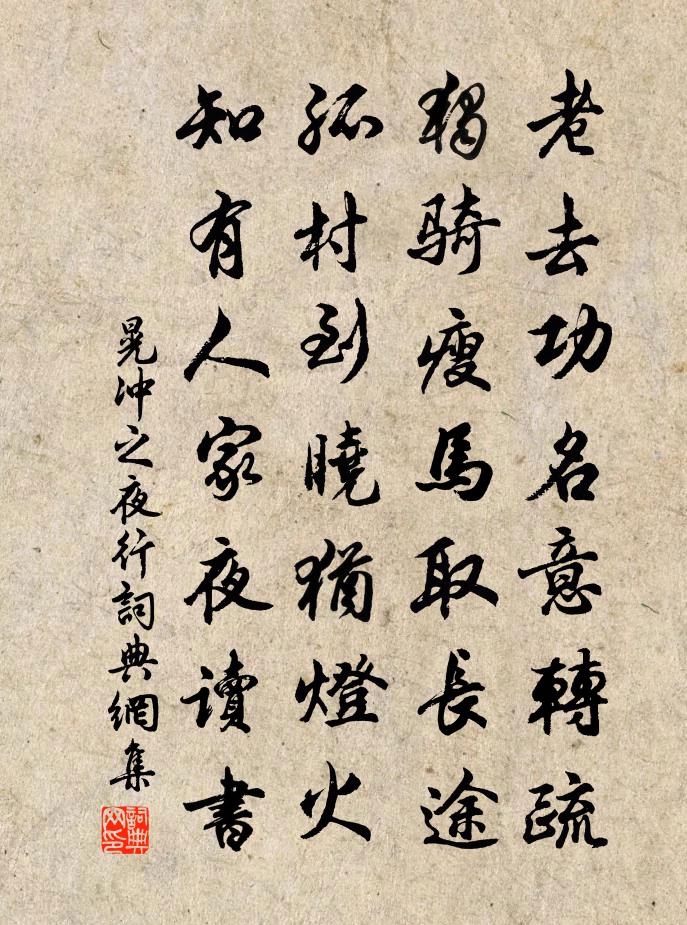 老去功名意轉疏
獨騎瘦馬取長途
孤村到曉猶燈火
知有人家夜讀書
晁冲之夜行詞典網集
詞典网印